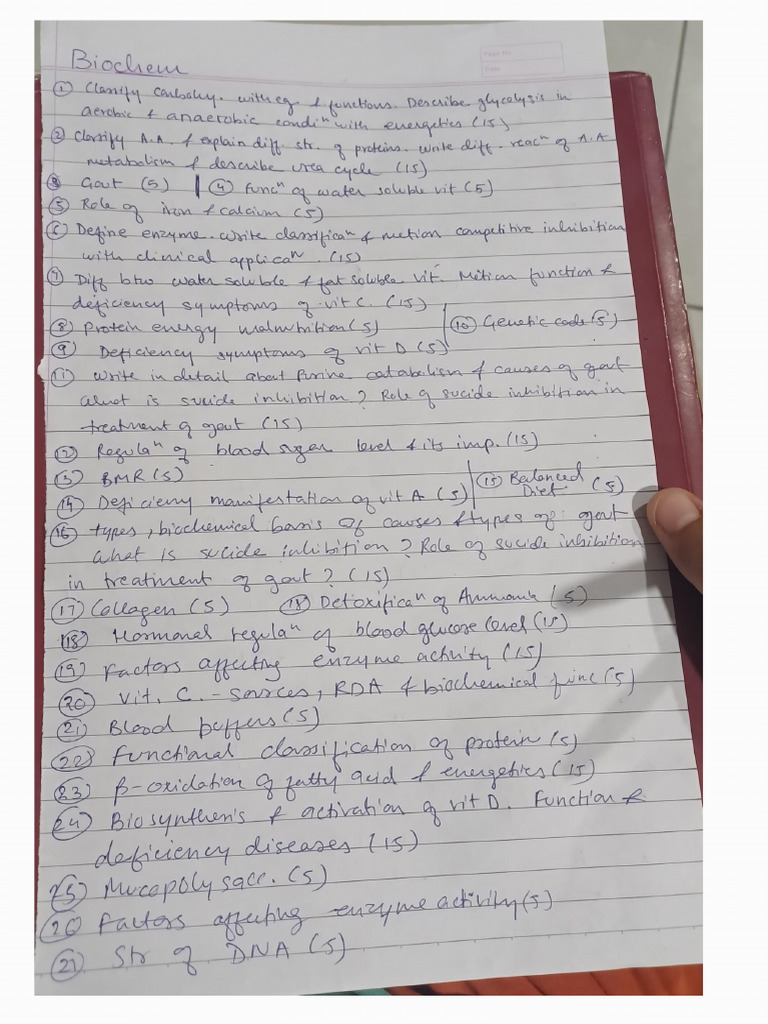 Page No.
Date
Biochem
① Classify carbohy. with eg & functions. Describe glycolysis in
aerobic & anaerobic condiⁿ with energetics (15)
② Classify A.A. & explain diff. str. of proteins. Write diff. reacⁿ of A.A
metabolism & describe urea cycle (15)
③ Gout (5) | ④ Funcⁿ of water soluble vit (5)
⑤ Role of iron & calcium (5)
⑥ Define enzyme. Write classificaⁿ & mention competitive inhibition
with clinical applicaⁿ. (15)
⑦ Diff btw water soluble & fat soluble vit. Mention function &
deficiency symptoms of vit C. (15)
⑧ Protein energy malnutrition (5) | ⑩ Genetic code (5)
⑨ Deficiency symptoms of vit D (5)
⑪ Write in detail about purine catabolism & causes of gout
What is suicide inhibition? Role of suicide inhibition in
treatment of gout (15)
⑫ Regulaⁿ of blood sugar level & its imp. (15)
⑬ BMR (5)
⑭ Deficieny manifestation of vit A (5) | ⑮ Balanced Diet (5)
⑯ types, biochemical basis of causes & types of gout
what is suicide inhibition? Role of suicide inhibition
in treatment of gout? (15)
⑰ Collagen (5) ⑱ Detoxificaⁿ of Ammonia (5)
⑱ Hormonal regulaⁿ of blood glucose level (15)
⑲ Factors affecting enzyme activity (15)
⑳ Vit. C. - sources, RDA & biochemical func (5)
㉑ Blood buffers (5)
㉒ Functional classification of protein (5)
㉓ β-oxidation of fatty acid & energetics (15)
㉔ Biosynthesis & activation of vit D. Function &
deficiency diseases (15)
㉕ Mucopolysacc. (5)
㉖ Factors affecting enzyme activity (5)
㉗ Str of DNA (5)